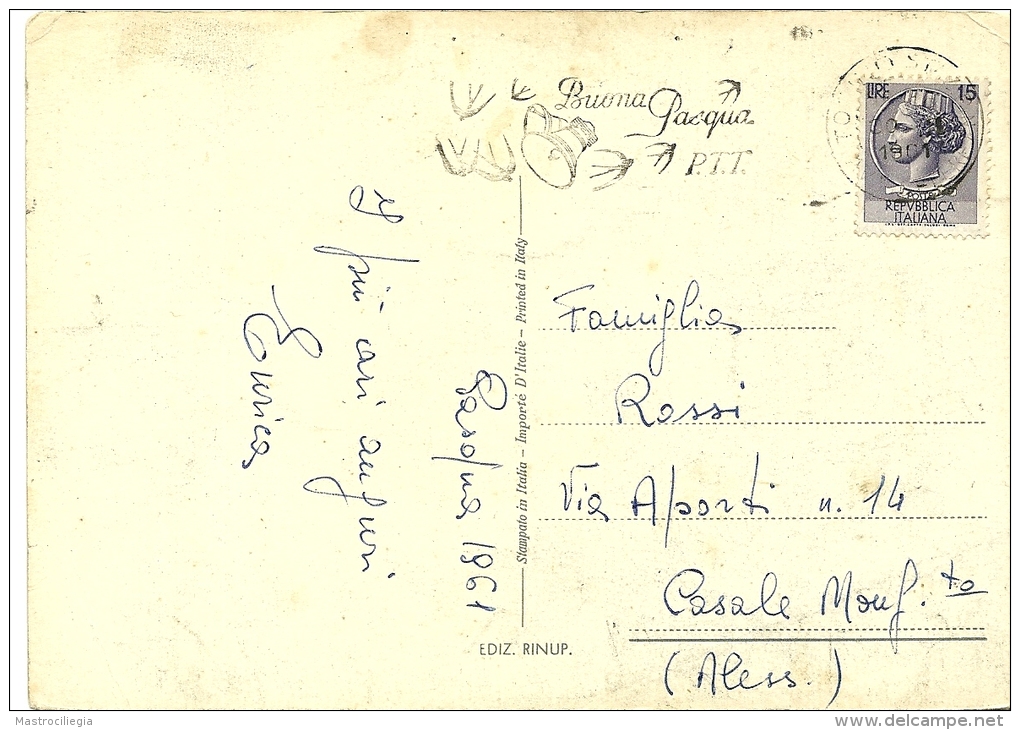 Buona Pasqua
P.T.T.
LIRE 15
1961
POSTE
REPVBBLICA
ITALIANA
Pasqua 1961
I più cari auguri
Enrica
Stampato in Italia – Importé D'Italie – Printed in Italy
Famiglia
Rossi
Via Aporti n. 14
Casale Monf.to
(Aless.)
EDIZ. RINUP.
Mastrociliegia
delcampe.net